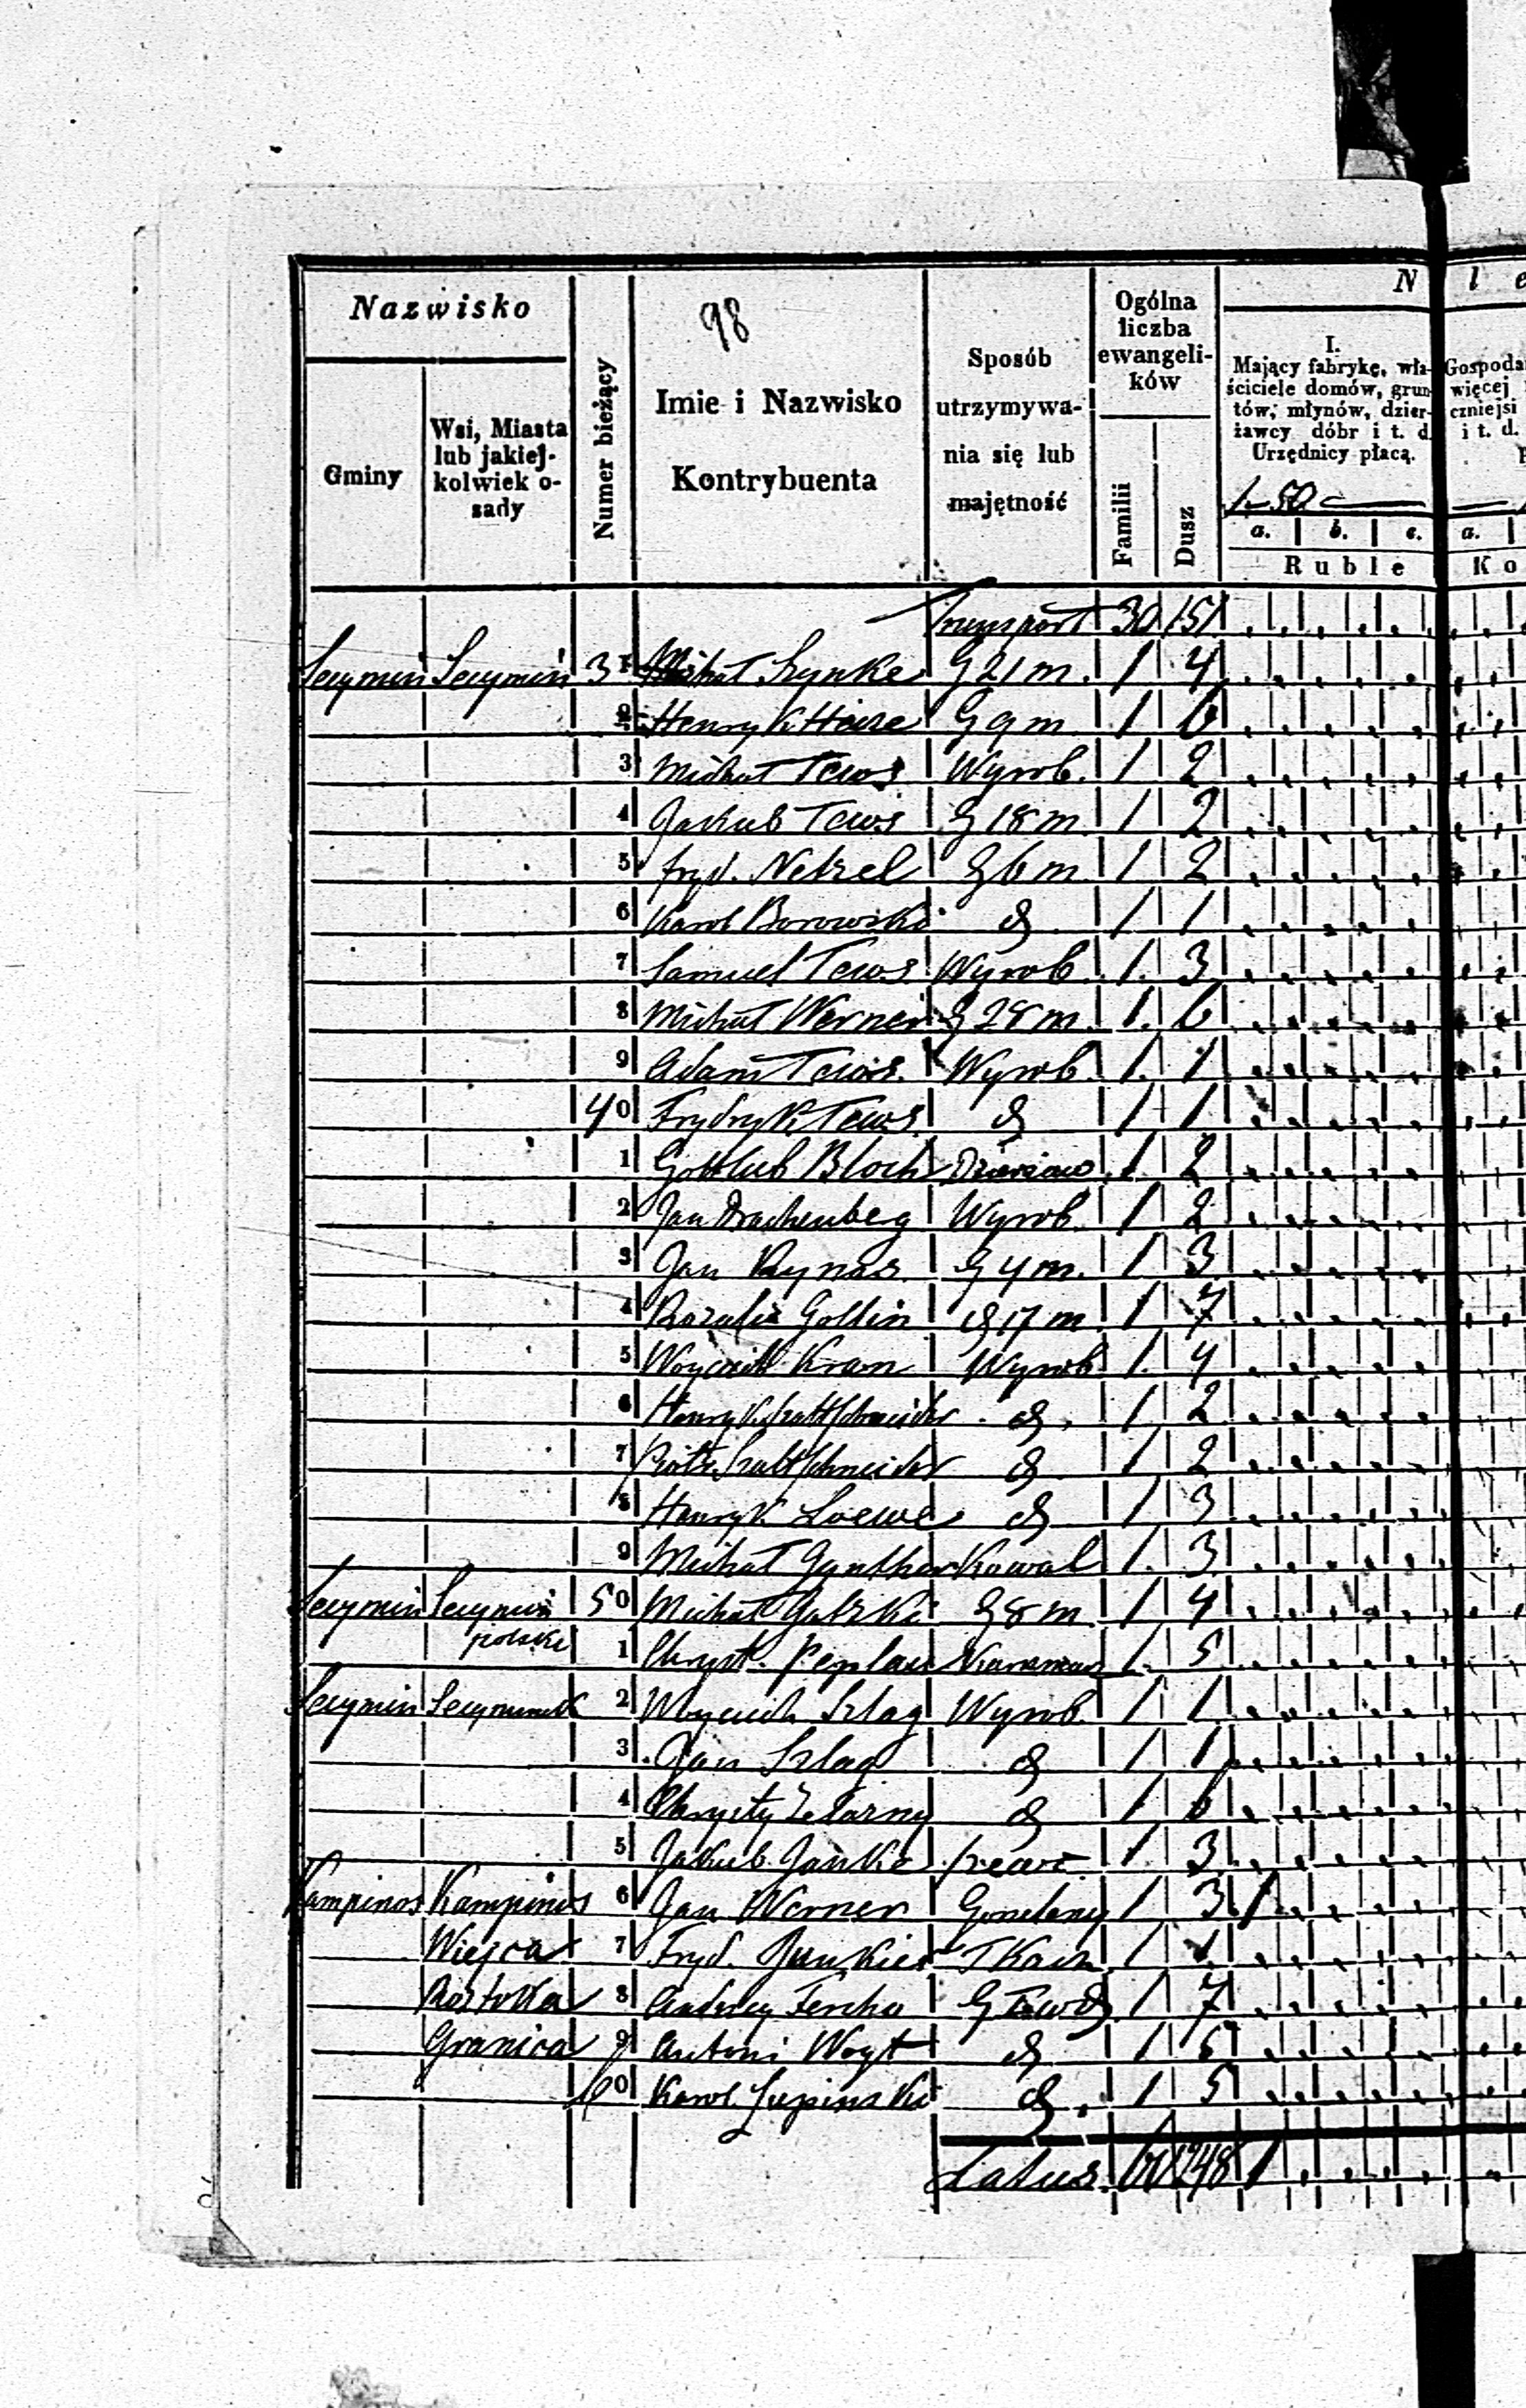 98
Nazwisko
Gminy
Wsi, Miasta lub jakiej-kolwiek o-sady
Numer bieżący
Imie i Nazwisko Kontrybuenta
Sposób utrzymywa-nia się lub majętność
Ogólna liczba ewangeli-ków
Familii
Dusz
N l e
I.
Mający fabrykę, wła-
ściciele domów, grun-
tów, młynów, dzier-
żawcy dóbr i t. d.
Urzędnicy płacą.
1-50
a. b. c.
Ruble
Gospoda
więcej
czniejsi
i t. d.
a.
Ko
Transport 30 151
Secymin Secymin 31 Michał Szynke G 21 m. 1 4
2 Henryk Heize G 9 m 1 6
3 Michał Tews Wyrob. 1 2
4 Jakub Tews G 18 m 1 2
5 Fryd. Netzel G 6 m 1 2
6 Karol Borowski d 1 1
7 Samuel Tews Wyrob 1 3
8 Michał Werner G 28 m. 1 6
9 Adam Tews Wyrob. 1 1
40 Frydryk Tews d 1 1
1 Gottlieb Bloch 1 2
2 Jan Drachenberg Wyrob 1 2
3 Jan Rynas G 4 m. 1 3
4 Rozalia Goltin G 17 m 1 7
5 Woyciech Kran Wyrob 1 4
6 Henryk d 1 2
7 Piotr d 1 2
8 Henryk Loewe d 1 3
9 Michał Gynther Kowal 1 3
Secymin Secymin polski 50 Michał Gatzki G 8 m 1 4
1 Chryst. Peplau 1 5
Secymin Secyminek 2 Woyciech Szlag Wyrob. 1 1
3 Jan Szlag d 1 1
4 Żelazny d 1 6
5 Jakub Janke Szewc 1 3
Kampinos Kampinos 6 Jan Werner Gorzelany 1 3 1
Wiejca 7 Fryd. Junkier Tkacz 1 1
Roztoka 8 Andrzej Ferche 1 7
Granica 9 Antoni Wogt d 1 5
60 Karol Lupinski d 1 5
Latus 60 248 1